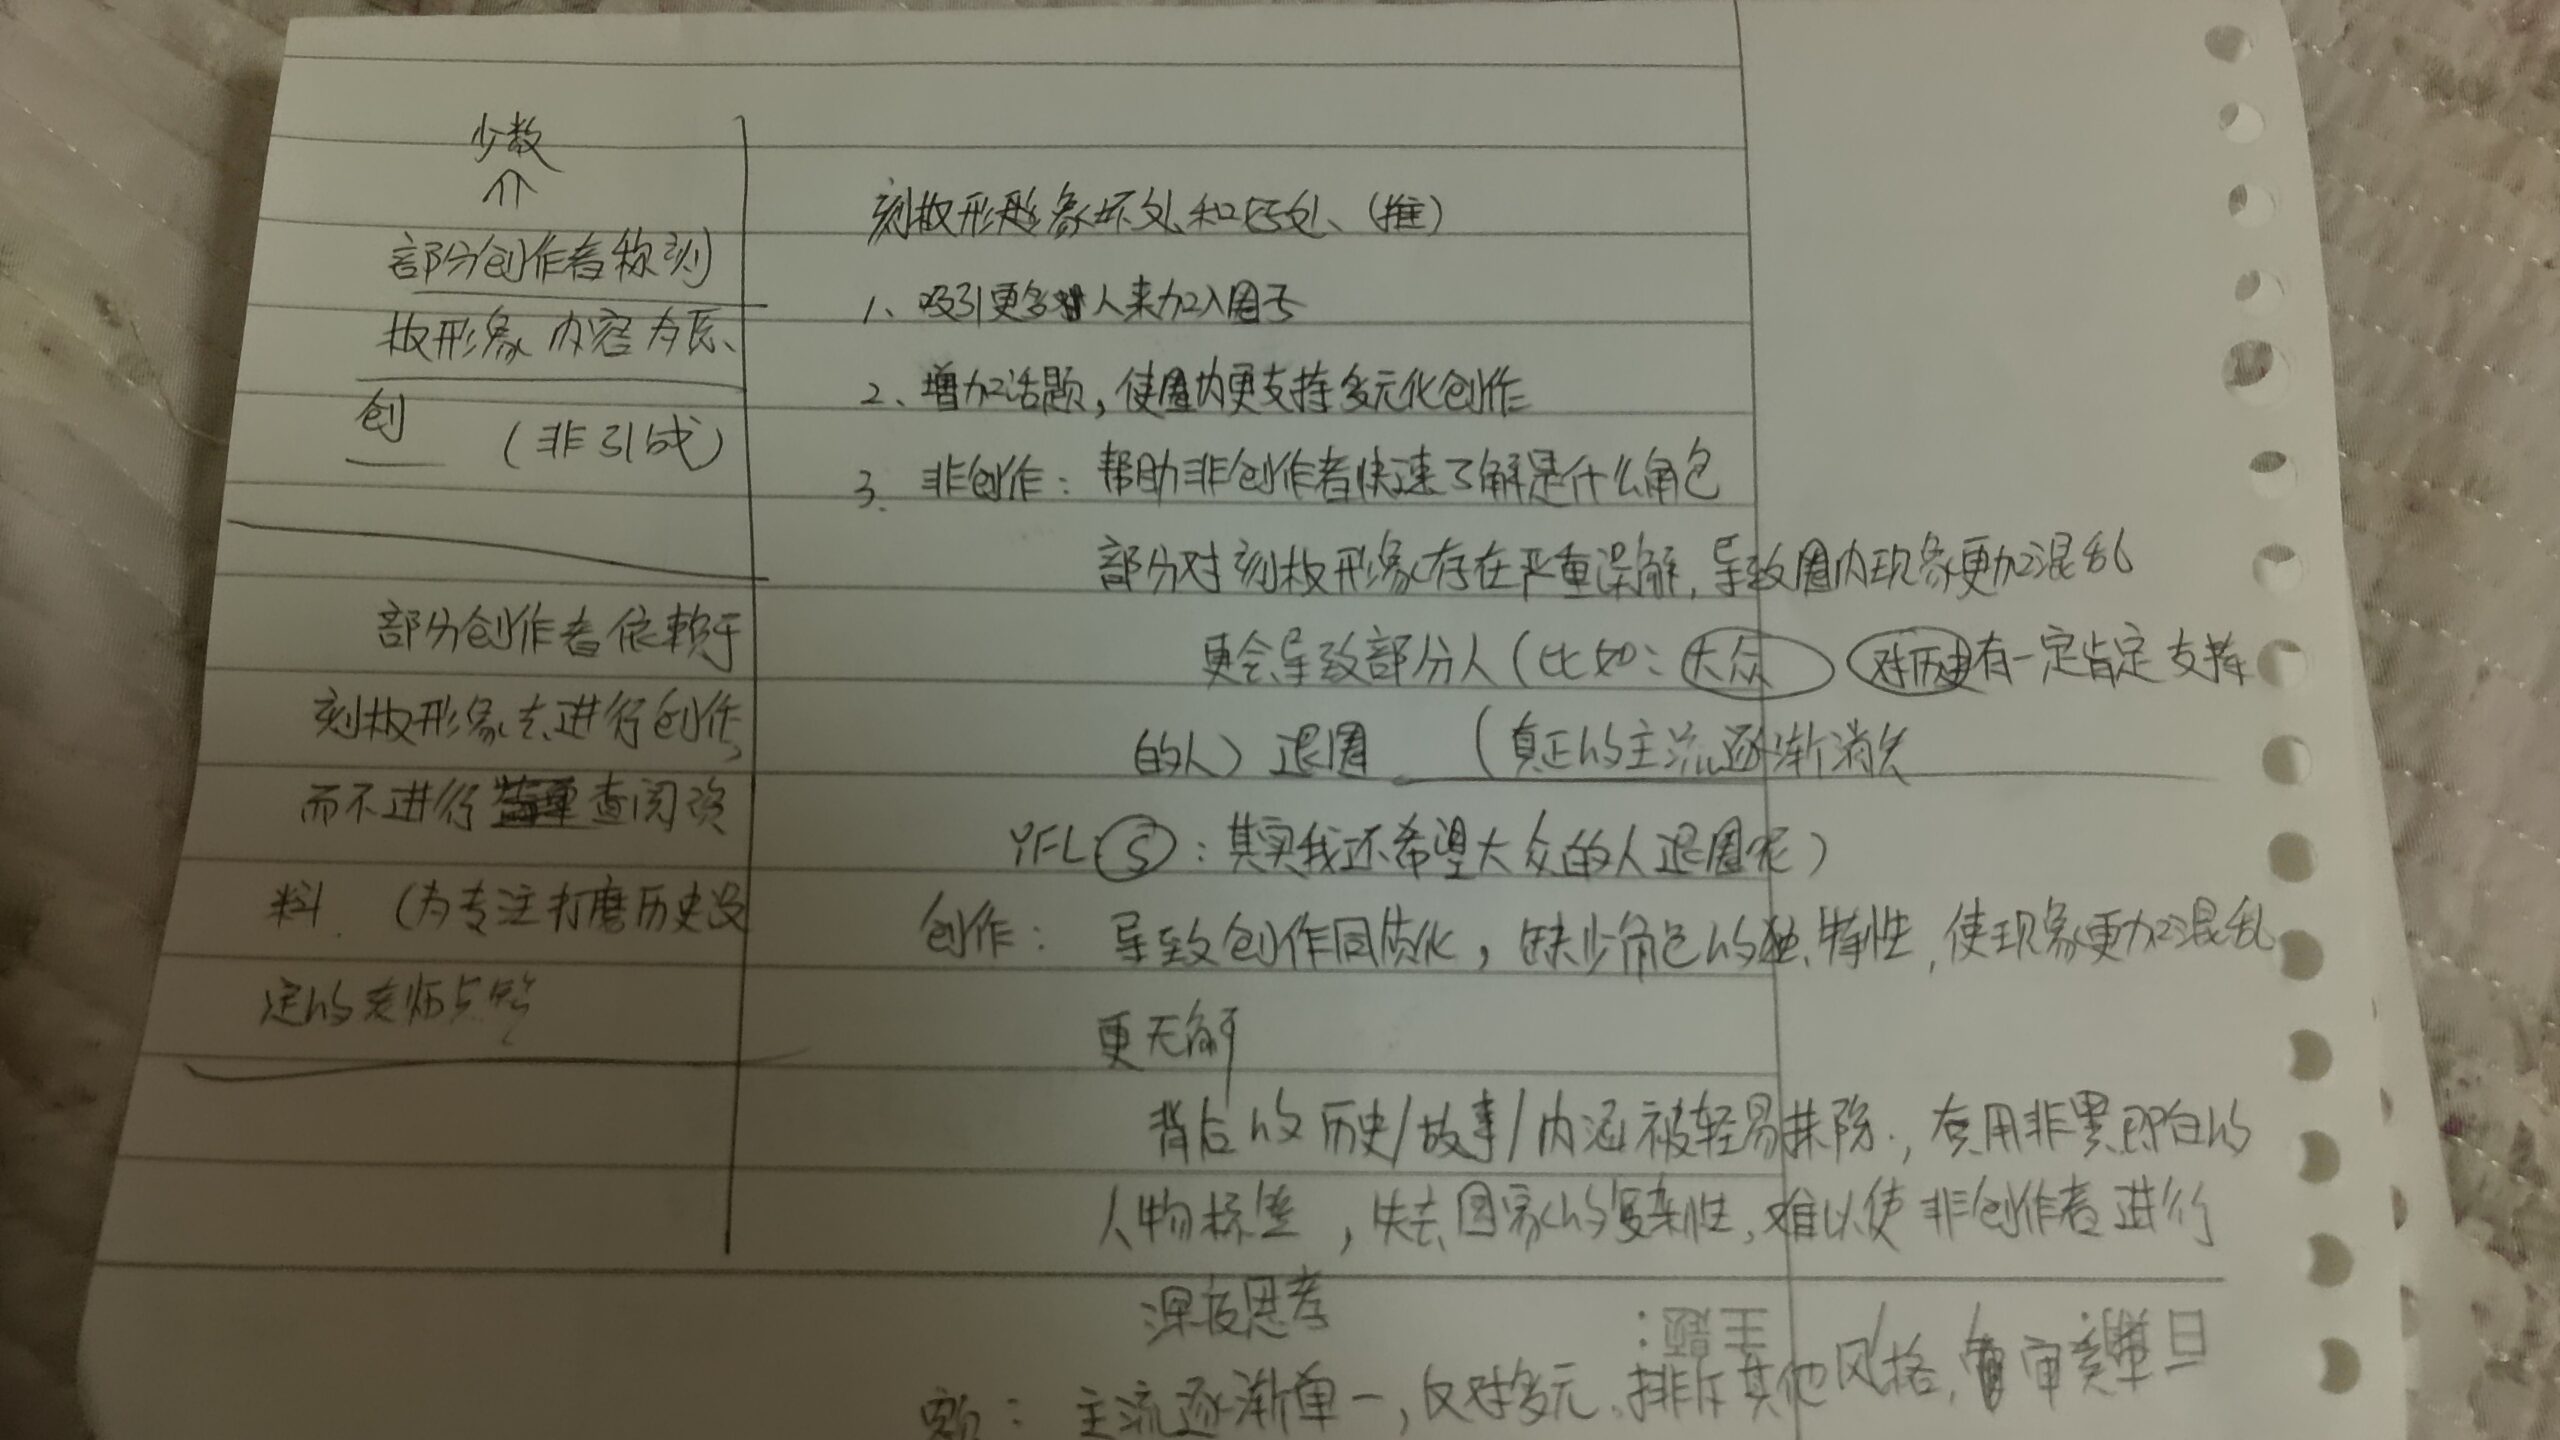 少数
部分创作者称刻
板形象内容为原
创 (非引战)
部分创作者依赖于
刻板形象去进行创作,
而不进行查阅资
料. (为专注打磨历史设
定的老师点赞
刻板形象坏处和好处、(推)
1、吸引更多人来加入圈子
2、增加话题,使圈内更支持多元化创作
3. 非创作: 帮助非创作者快速了解是什么角色
部分对刻板形象存在严重误解, 导致圈内现象更加混乱
更会导致部分人(比如: 大众 对历史有一定肯定支持
的人) 退圈 (真正的主流逐渐消失
YFL S : 其实我还希望大众的人退圈呢)
创作: 导致创作同质化, 缺少角色的独特性, 使现象更加混乱
更无解
背后的历史/故事/内涵被轻易抹除, 用非黑即白的
人物标签, 失去国家的复杂性, 难以使非创作者进行
深度思考
主题:
主流逐渐单一, 反对多元, 排斥其他风格, 审美单
日